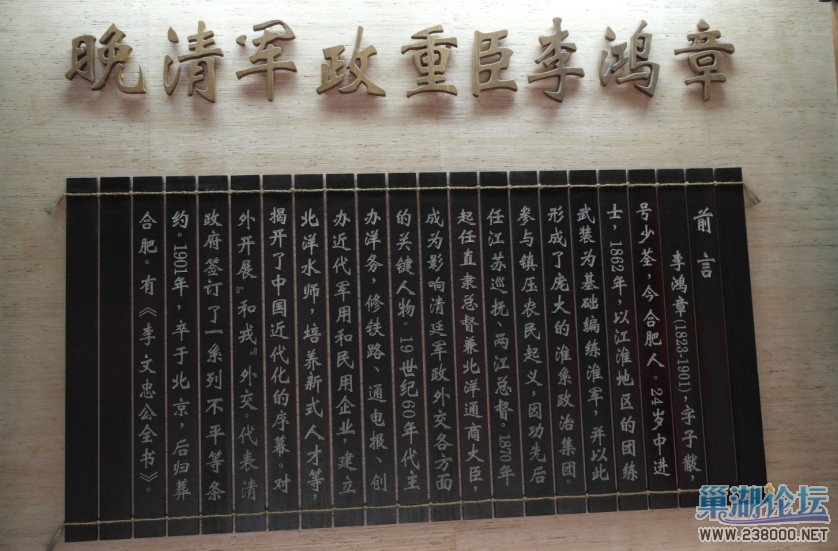 晚清军政重臣李鸿章
前言
李鸿章(1823-1901)，字子黻，
号少荃，今合肥人。24岁中进
士，1862年，以江淮地区的团练
武装为基础编练淮军，并以此
形成了庞大的淮系政治集团。
参与镇压农民起义，因功先后
任江苏巡抚、两江总督。1870年
起任直隶总督兼北洋通商大臣，
成为影响清廷军政外交各方面
的关键人物。19世纪60年代主
办洋务，修铁路、通电报、创
办近代军用和民用企业，建立
北洋水师，培养新式人才等，
揭开了中国近代化的序幕。对
外开展“和戎”外交。代表清
政府签订了一系列不平等条
约。1901年，卒于北京，后归葬
合肥。有《李文忠公全书》。
巢湖论坛
www.238000.NET